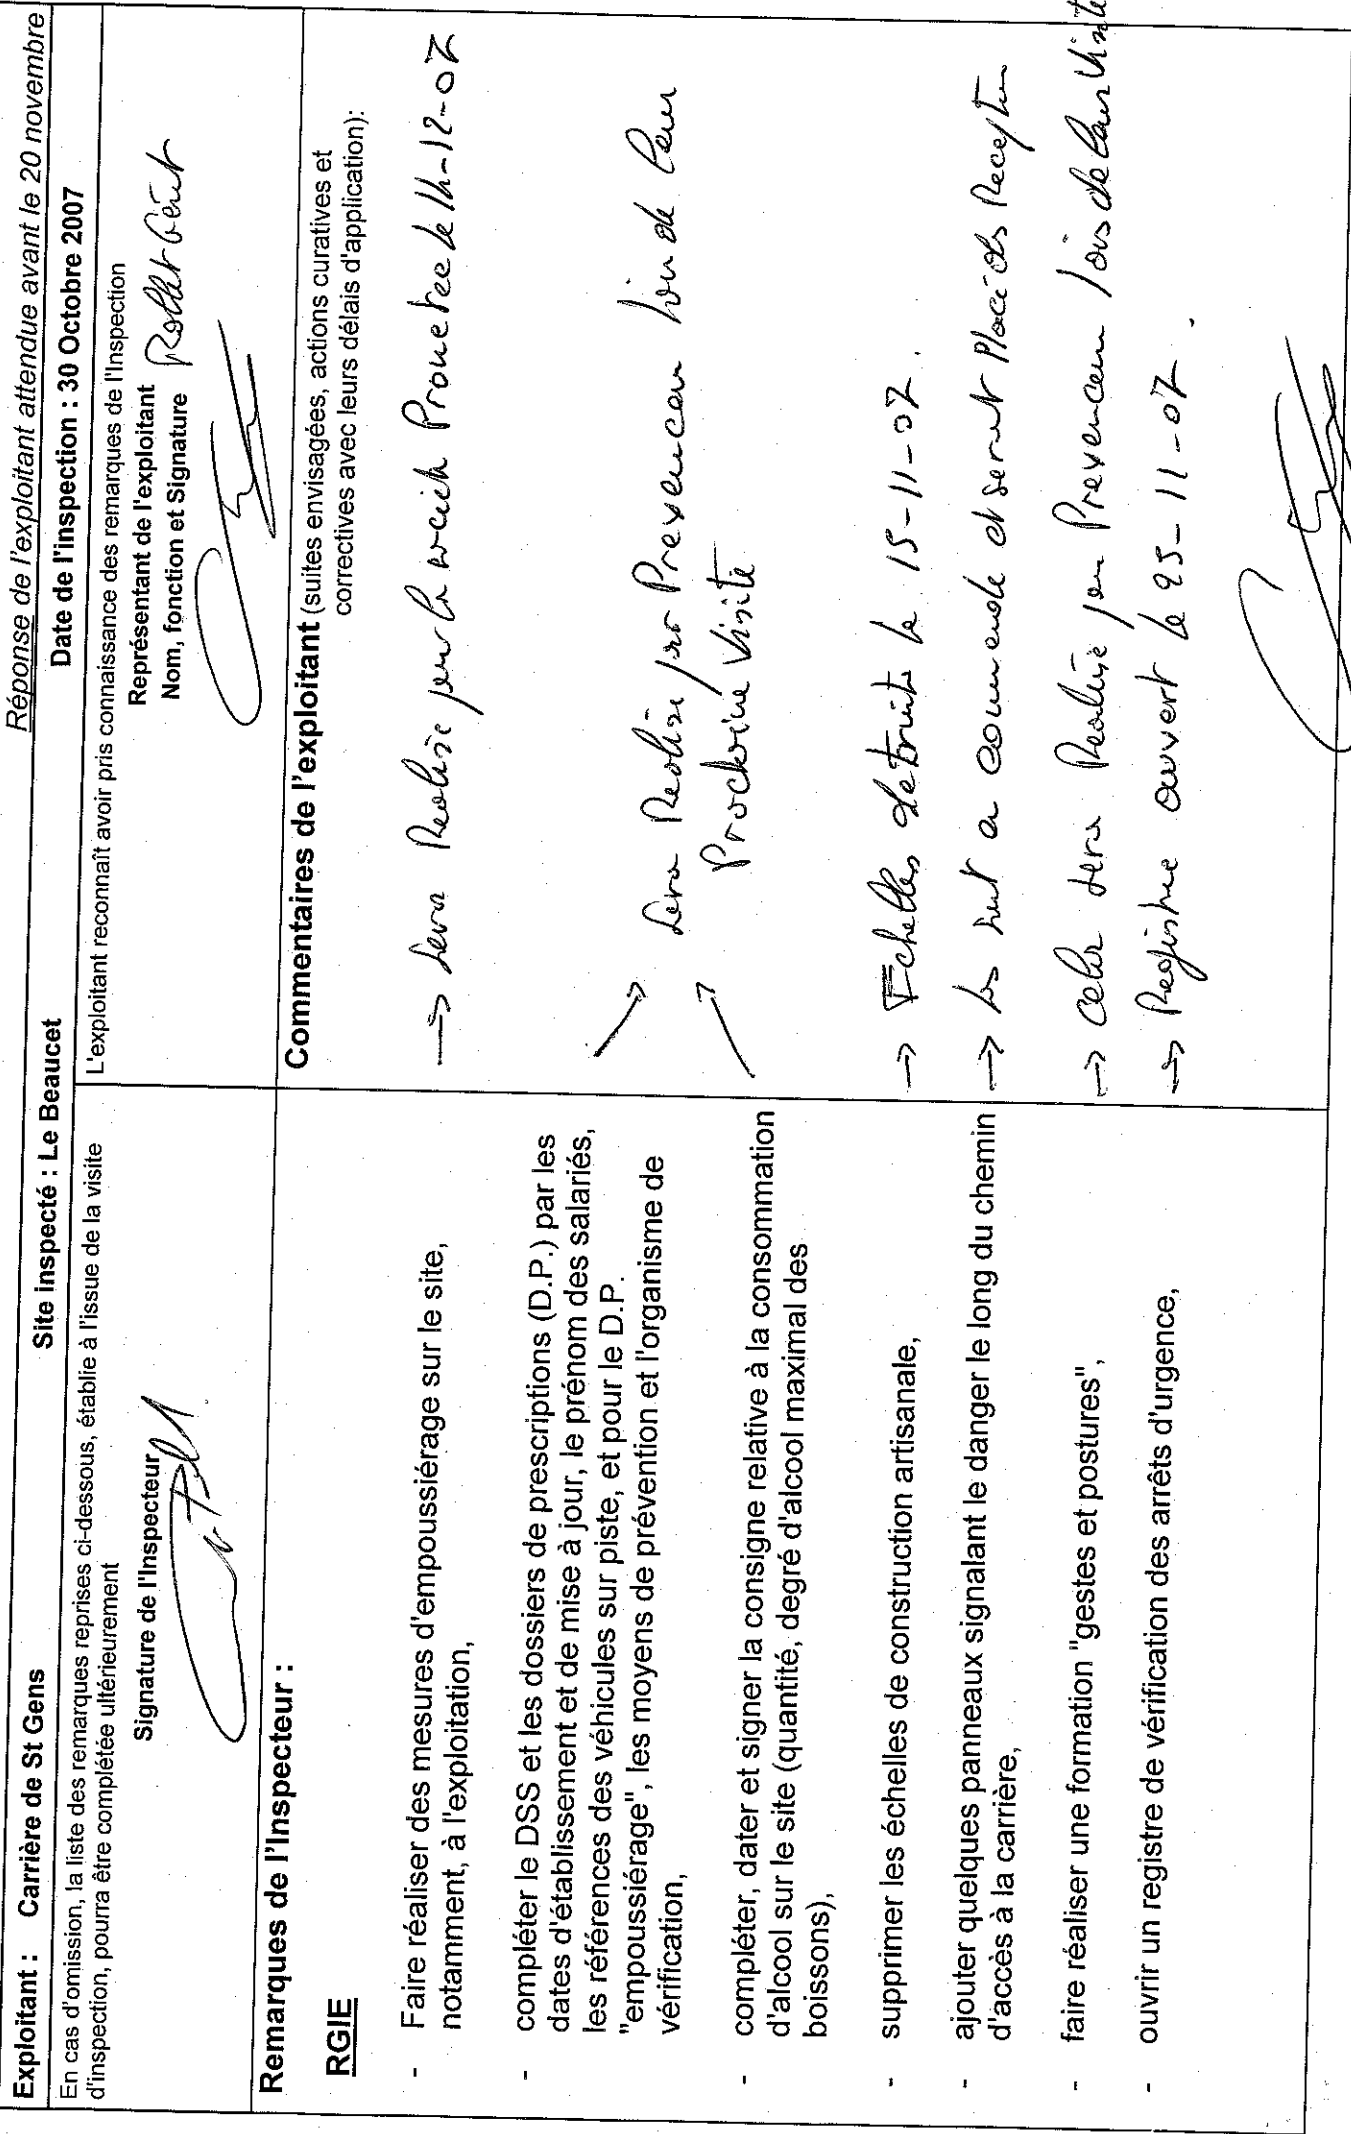 Réponse de l'exploitant attendue avant le 20 novembre
Exploitant : Carrière de St Gens Site inspecté : Le Beaucet Date de l'inspection : 30 Octobre 2007
En cas d'omission, la liste des remarques reprises ci-dessous, établie à l'issue de la visite
d'inspection, pourra être complétée ultérieurement
Signature de l'Inspecteur
L'exploitant reconnaît avoir pris connaissance des remarques de l'Inspection
Représentant de l'exploitant
Nom, fonction et Signature
Remarques de l'Inspecteur :
RGIE
- Faire réaliser des mesures d'empoussiérage sur le site,
notamment, à l'exploitation,
- compléter le DSS et les dossiers de prescriptions (D.P.) par les
dates d'établissement et de mise à jour, le prénom des salariés,
les références des véhicules sur piste, et pour le D.P.
"empoussiérage", les moyens de prévention et l'organisme de
vérification,
- compléter, dater et signer la consigne relative à la consommation
d'alcool sur le site (quantité, degré d'alcool maximal des
boissons),
- supprimer les échelles de construction artisanale,
- ajouter quelques panneaux signalant le danger le long du chemin
d'accès à la carrière,
- faire réaliser une formation "gestes et postures",
- ouvrir un registre de vérification des arrêts d'urgence,
Commentaires de l'exploitant (suites envisagées, actions curatives et
correctives avec leurs délais d'application):
→ Sera Realisé par la 12-07
Sera Realisé par Prevencem lors de leur
Prochaine Visite
→ Echelles detruite le 15-11-07.
→ Ils sont a commande et seront Placé dès Reception
→ cela sera Realisé par Prevencem lors de leur Visite
→ Registre ouvert le 25-11-07.